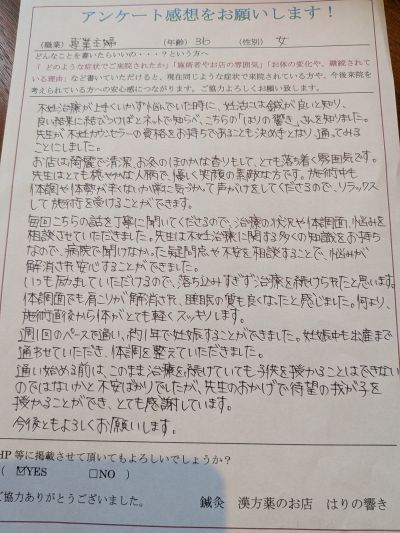 アンケート感想をお願いします！
(職業) 専業主婦 (年齢) 36 (性別) 女
どんなことを書いたらいいの・・・？という方へ
「どのような症状でご来院されたか」「施術者やお店の雰囲気」「お体の変化や、継続されて
いる理由」など書いていただけると、現在同じような症状で来院されている方や、今後来院を
考えられている方への安心感につながります。ご協力よろしくお願い致します。
不妊治療が上手くいかず悩んでいた時に、妊活には鍼が良いと知り、
良い結果に結びつけばとネットで知らべ、こちらの「はりの響き」さんを知りました。
先生が不妊カウンセラーの資格をお持ちであることも決め手となり、通ってみる
ことにしました。
お店は綺麗で清潔、お灸のほのかな香りもして、とても落ち着く雰囲気です。
先生はとても穏やかな人柄で、優しい笑顔の素敵な方です。施術中も
体調や体勢が辛くないか常に気づかって声がけをしてくださるので、リラックス
して施術を受けることができます。
毎回こちらの話を丁寧に聞いてくださるので、治療の状況や体調面、悩みを
相談させていただきました。先生は不妊治療に関する多くの知識をお持ち
なので、病院で聞けなかった疑問点や不安を相談することで、悩みが
解消され安心することができました。
いつも励ましていただけるので、落ち込みすぎず治療を続けられたと思います。
体調面でも肩こりが解消され、睡眠の質も良くなったと感じました。何より、
施術直後から体がとても軽くスッキリします。
週1回のペースで通い、約1年で妊娠することができました。妊娠中も出産まで
通わせていただき、体調を整えていただきました。
通い始める前は、このまま治療を続けていても子供を授かることはできない
のではないかと不安ばかりでしたが、先生のおかげで待望の我が子を
授かることができ、とても感謝しています。
今後ともよろしくお願いします。
HP 等に掲載させて頂いてもよろしいでしょうか？
( ☑YES □NO )
ご協力ありがとうございました。 鍼灸 漢方薬のお店 はりの響き